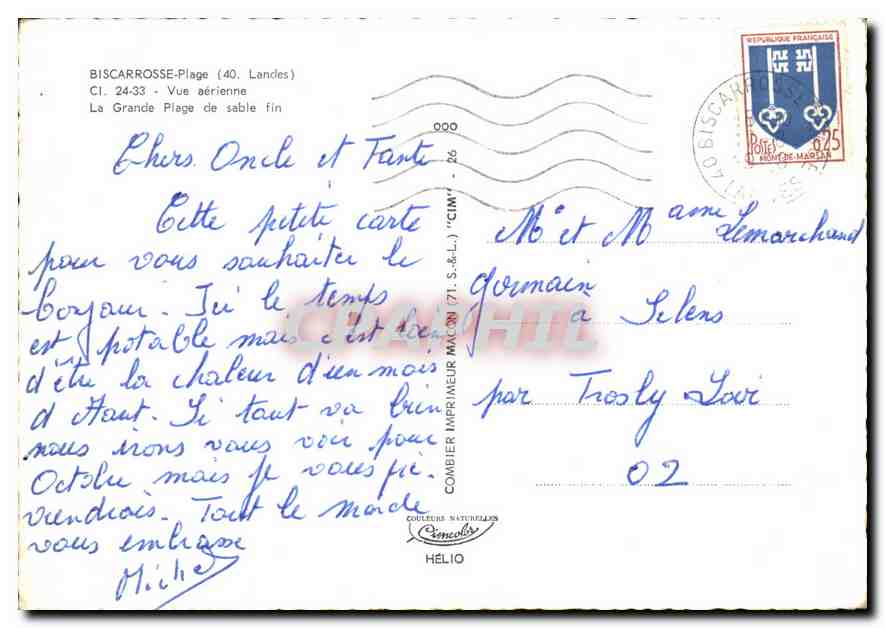 BISCARROSSE-Plage (40. Landes)
CI. 24-33 - Vue aérienne
La Grande Plage de sable fin
Chers Oncle et Tante
Cette petite carte
pour vous souhaiter le
bonjour. Ici le temps
est potable mais c'est loin
d'être la chaleur d'un mois
d'Aout. Si tout va bien
nous irons vous voir pour
Octobre mais je vous pré-
viendrais. Tout le monde
vous embrasse
Michel
COMBIER IMPRIMEUR MACON (71. S.-&-L.) "CIM" - 26
000
COULEURS NATURELLES
Cimcolor
HÉLIO
REPUBLIQUE FRANÇAISE
POSTES
0,25
MONT-DE-MARSAN
40 BISCARROSSE
Mr et Mame Lemarchand
Germain
à Selens
par Trosly Loire
02
CPAPHIL